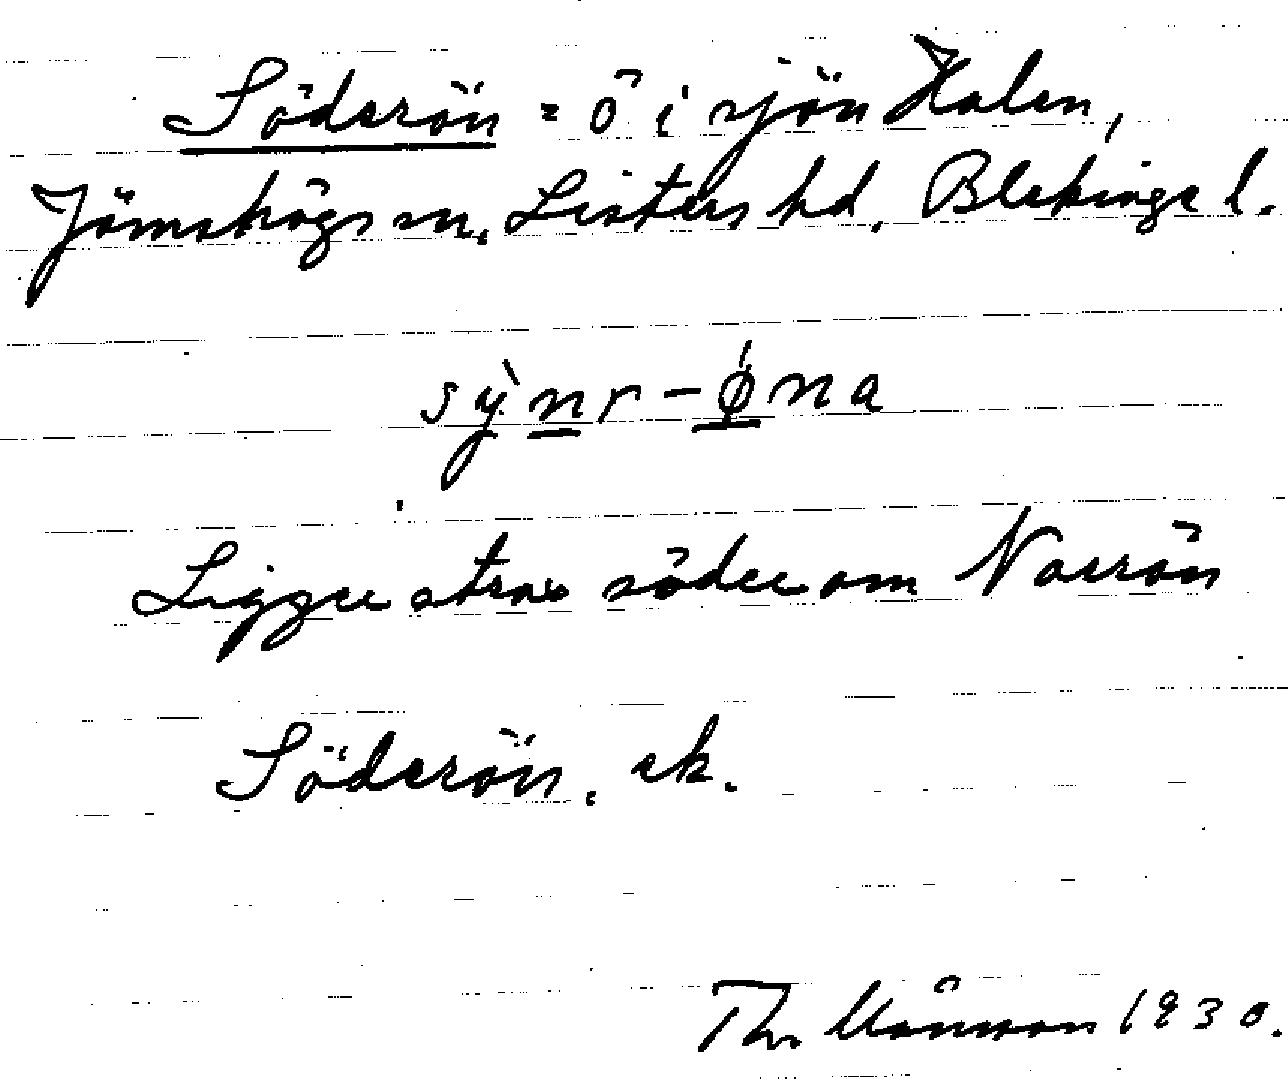 Söderön = ö i sjön Halen,
Jämshögs sn. Listers hd. Blekinge l.
sỳnr-ǿna
Ligger strax söder om Norrön
Söderön. ek.
Th. Månsson 1930.